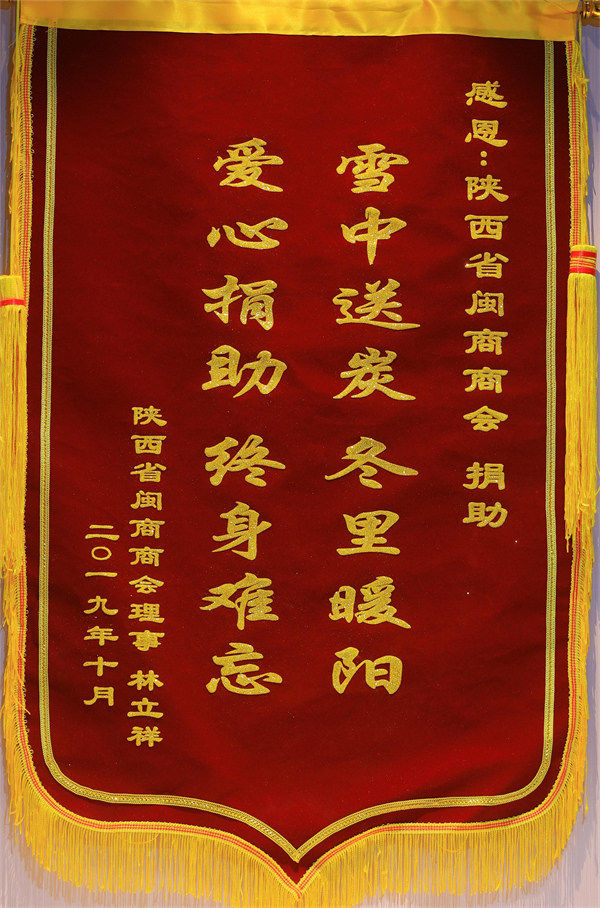 感恩：陕西省闽商商会 捐助
雪中送炭 冬里暖阳
爱心捐助 终身难忘
陕西省闽商商会理事 林立祥
二〇一九年十月